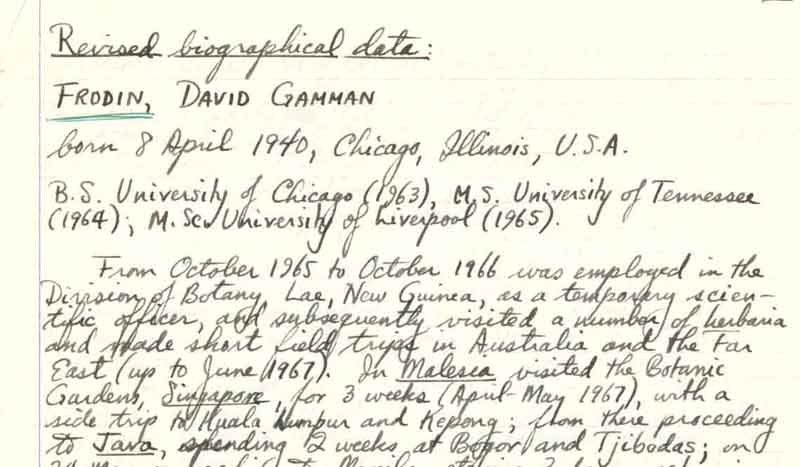 Revised biographical data:
FRODIN, DAVID GAMMAN
born 8 April 1940, Chicago, Illinois, U.S.A.
B.S. University of Chicago (1963), M.S. University of Tennessee
(1964); M.Sc. University of Liverpool (1965).
From October 1965 to October 1966 was employed in the
Division of Botany, Lae, New Guinea, as a temporary scien-
tific officer, and subsequently visited a number of herbaria
and made short field trips in Australia and the Far
East (up to June 1967). In Malesea visited the Botanic
Gardens, Singapore, for 3 weeks (April-May 1967), with a
side trip to Kuala Lumpur and Kepong; from there proceeding
to Java, spending 2 weeks at Bogor and Tjibodas; on